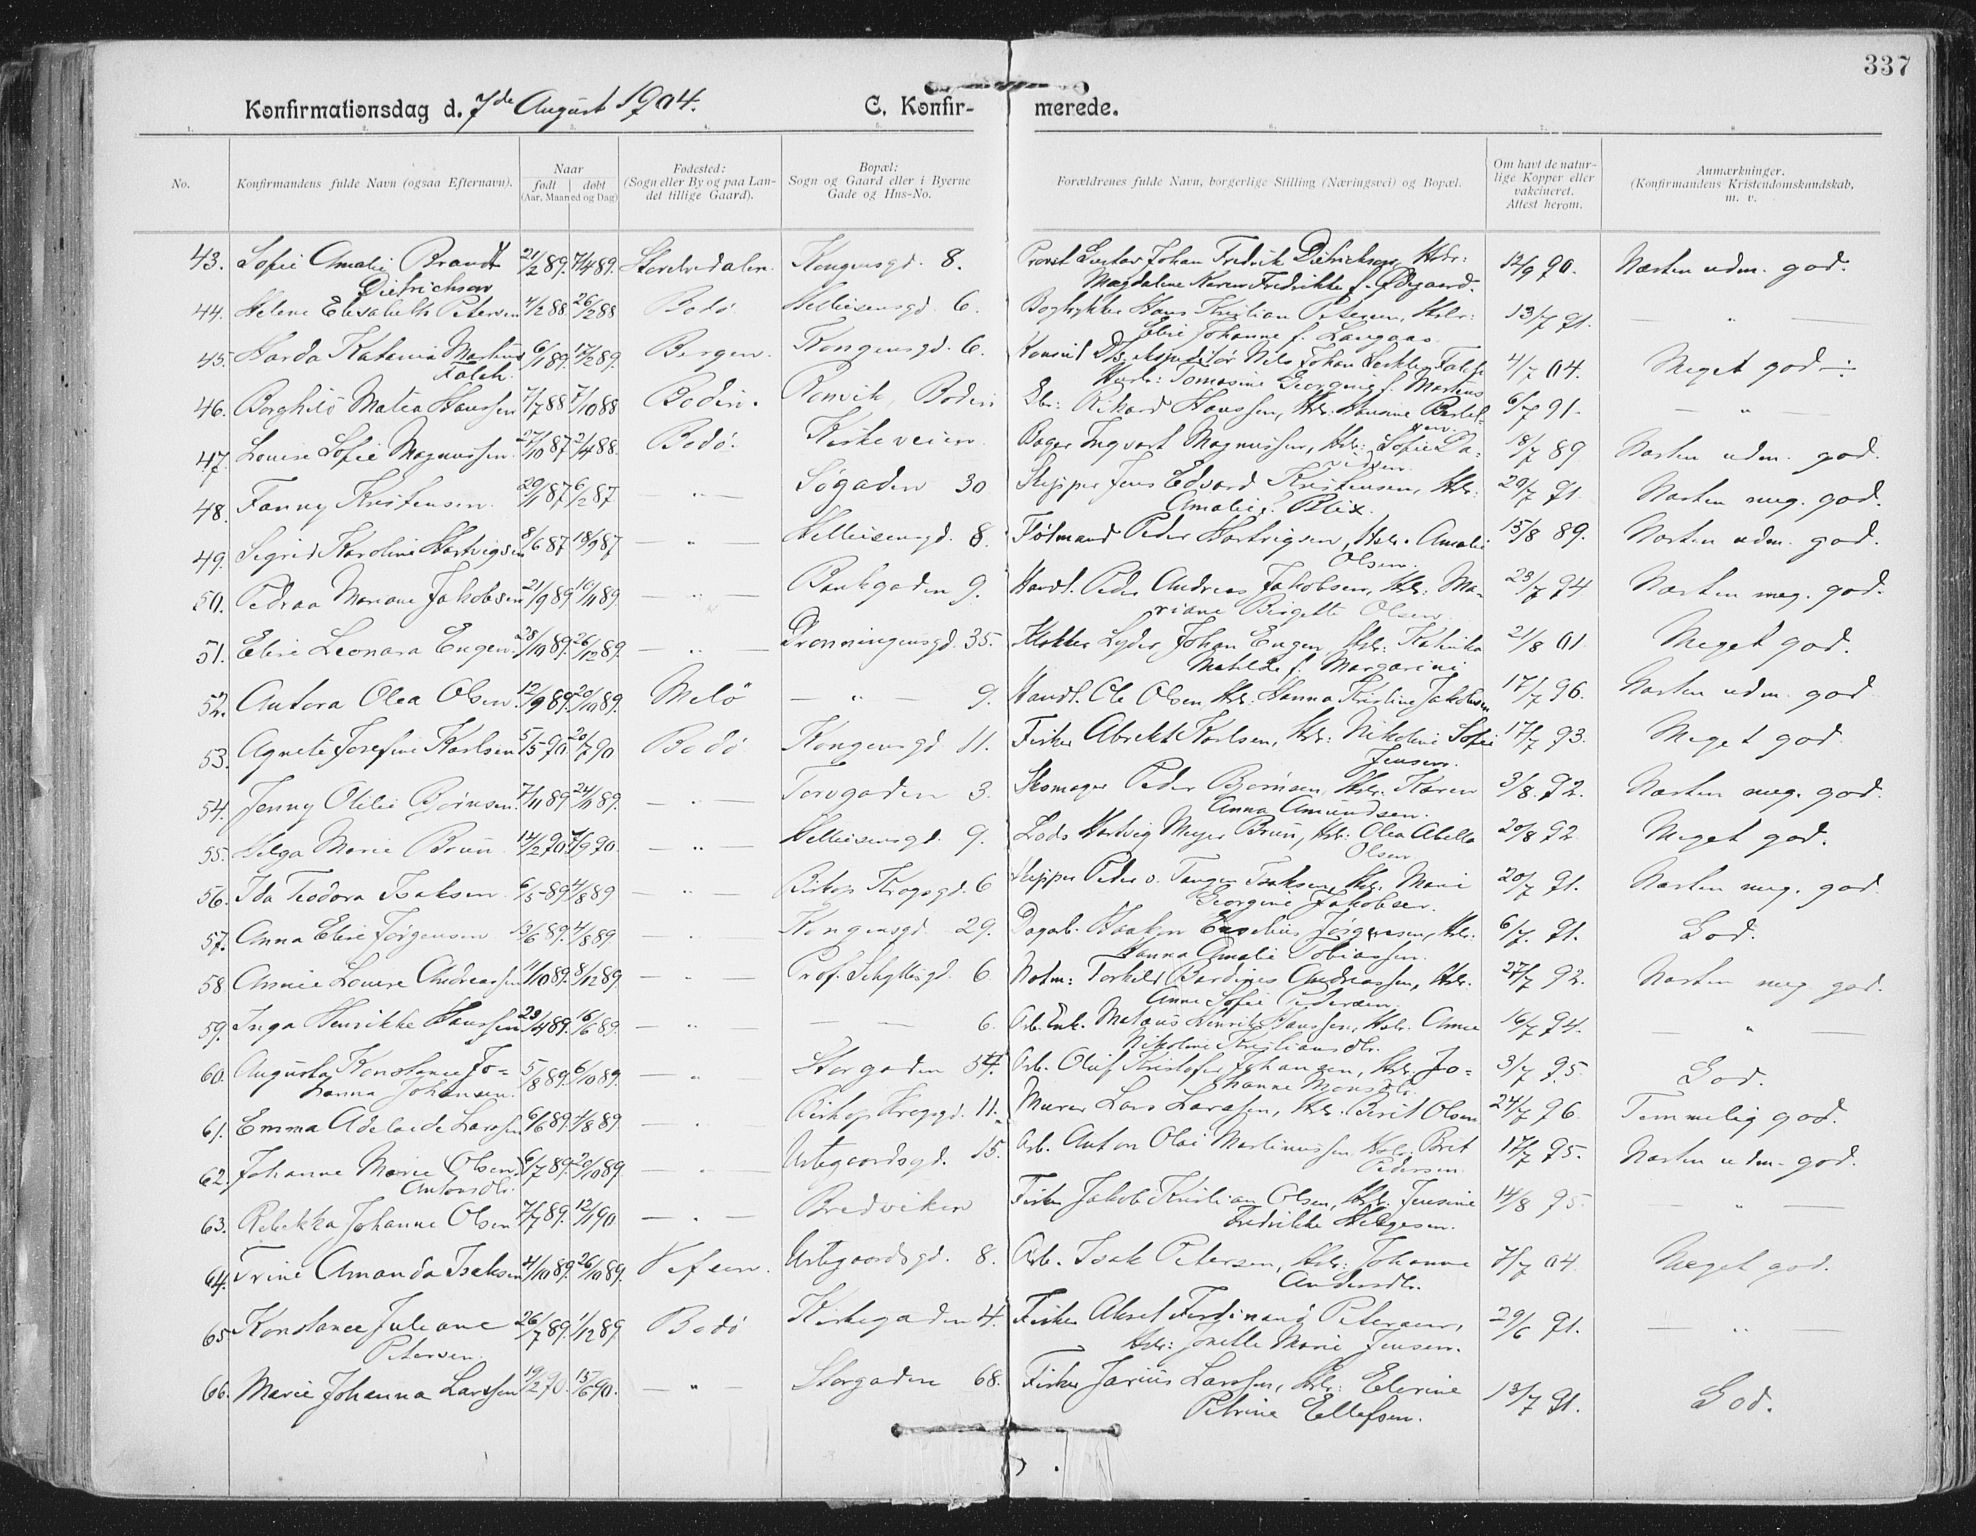 337
Konfirmationsdag d. 7de August 1904. C. Konfir- merede.
1. 2. 3. 4. 5. 6. 7. 8
No. Konfirmandens fulde Navn (ogsaa Efternavn). Naar født døbt (Aar, Maaned og Dag) Fødested: (Sogn eller By og paa Landet tillige Gaard). Bopæl: Sogn og Gaard eller i Byerne Gade og Hus-No. Forældrenes fulde Navn, borgerlige Stilling (Næringsvei) og Bopæl. Om havt de naturlige Kopper eller vakcineret. Attest herom. Anmærkninger. (Konfirmandens Kristendomskundskab, m. v.
43. Sofie Amalie Brandt 21/2 89. 7/4 89. Kongensgd. 8. Provst Gustav Johan Fredrik Dietrichson, Hstr: 12/9 90. Næsten udm. god.
Dietrichson Magdalene Karen Fredrikke f. Ødegaard.
44. Helene Elisabeth Petersen 4/2 88 26/2 88 Bodø Hellesensgd. 6. Bogtrykker Hans Kristian Petersen, Hstr: 13/7 91. — „ —
Elise Johanne f. Langaas.
45. Harda Katinka Martens 6/1 89. 17/2 89. Bergen. Kongensgd. 6. Nils Johan Falch 4/7 04. Meget god
Falch. Hustr: Tomasine Georgine f. Martens
46. Borghild Matea Hanssen 7/7 88 7/10 88 Bodin. Rønvik, Bodin Rikard Hanssen, Hstr. Hansine Bertel- 6/7 91. — „ —
sen.
47. Louise Sofie Magnussen. 27/10 87 2/4 88. Bodø. Kirkeveien. Bager Ingvart Magnussen, Hstr: Sofie Da- 18/7 89 Næsten udm. god.
vidsen.
48. Fanny Kristensen. 29/1 87 6/2 87 — „ — Søgaden 30 Skipper Jens Edvard Kristensen, Hstr: 20/7 91 Næsten meg. god.
Amalie f. Blix.
49. Sigrid Karoline Hartvigsen 8/6 87 18/9 87 — „ — Hellesensgd. 8. Følmand Peder Hartvigsen, Hstr. Amalie 15/8 89. Næsten udm. god.
Olsen.
50. Pedraa Mariane Jakobsen 21/9 89. 10/11 89. — „ — Bankgaden 9. Handl. Peder Andreas Jakobsen, Hstr. Ma- 23/7 94 Næsten meg. god.
riane Birgette Olsen.
51. Elise Leonara Engen. 28/10 89. 26/12 89. — „ — Dronningensgd. 35. Klokker Lyder Johan Engen, Hstr. Katinka 21/8 01 Meget god.
Matilde f.
52. Antora Olea Olsen. 12/9 89. 20/10 89. Melø — „ — 9. Handl. Ole Olsen, Hstr. Hanna Kristine Jakobsen 17/7 96. Næsten udm. god
53. Agnete Josefine Karlsen 5/5 90 20/7 90 Bodø. Kongensgd. 11. Fisker Abrekt Karlsen, Hstr: Nikoline Sofie 17/7 93. Meget god
Jensen.
54. Jenny Otilie Bjørnsen. 7/11 89. 24/11 89. — „ — Torvgaden 3. Skomager Peder Bjørnsen, Hstr. Karen 3/8 92. Næsten meg. god.
Anna Amundsen.
55. Helga Marie Bruun 14/2 90. 7/9 90. — „ — Hellesensgd. 9. Lods Hartvig Meyer Bruun, Hstr: Olea Abella 20/8 92. Meget god.
Olsen
56. Ida Teodora Isaksen. 6/5 89. 4/8 89 — „ — Biskop Krogsgd. 6 Skipper Peder v. Tangen Isaksen, Hstr. Marie 20/7 91. Næsten meg. god
Georgine Jakobsen.
57. Anna Elise Jørgensen 13/6 89. 4/8 89. — „ Kongensgd. 29. Dagarb. Haakon Jørgensen, Hstr. 6/7 91. God.
Hanna Amalie Tobiassen.
58. Annie Lovise Andreassen 11/10 89. 8/12 89. — „ — Prof. Schyttesgd. 6 Torkild Andreassen, Hstr. 27/7 92. Næsten meg. god.
Anne Sofie Pedersen
59. Inga Henrikke Hanssen 23/4 89. 16/6 89. — „ — — 6. Arb. Enk. Mataus Henrik Hanssen, Hstr. Anne 16/7 94. — „ —
Nikoline Kristiansdtr.
60. Augusta Konstance Jo- 5/8 89. 6/10 89. — „ Storgaden 54. Arb. Oluf Kristofer Johansen, Hstr. Jo- 3/7 95. God.
hanna Johansen. hanne Monsdtr.
61. Emma Adelaide Larssen 6/6 89. 4/8 89. — „ Biskop Krogsgd. 11. Murer Lars Larssen, Hstr. Berit Olsen 24/7 96. Temmelig god.
62. Johanne Marie Olsen. 6/7 89. 20/10 89. — „ — Urtegaardsgd. 15. Arb. Anton Olai Martinussen Hstr. Brit 17/7 95. Næsten udm. god.
Antonsdtr. Pedersen
63. Rebekka Johanne Olsen 7/7 89. 12/1 90 — „ — Bredviken Fisker Jakob Kristian Olsen, Hstr. Jensine 14/8 95. — „ —
Fredrikke Helgesen.
64. Trine Amanda Isaksen 4/10 89. 26/10 89. Vefsen. Urtegaardsgd. 8. Arb. Isak Petersen, Hstr: Johanne 7/7 04 Meget god.
Andersdtr.
65. Konstance Juliane 26/7 89. 1/12 89 Bodø Kirkegaden 4. Fisker Aksel Ferdinand Petersen, 29/6 91. — „ —
Petersen. Hstr: Jonette Marie Jensen.
66. Marie Johanna Larssen 19/2 90. 15/6 90. — „ — Storgaden 68. Fisker Jarius Larssen, Hstr: Elerine 13/7 91. God.
Petrine Ellefsen.